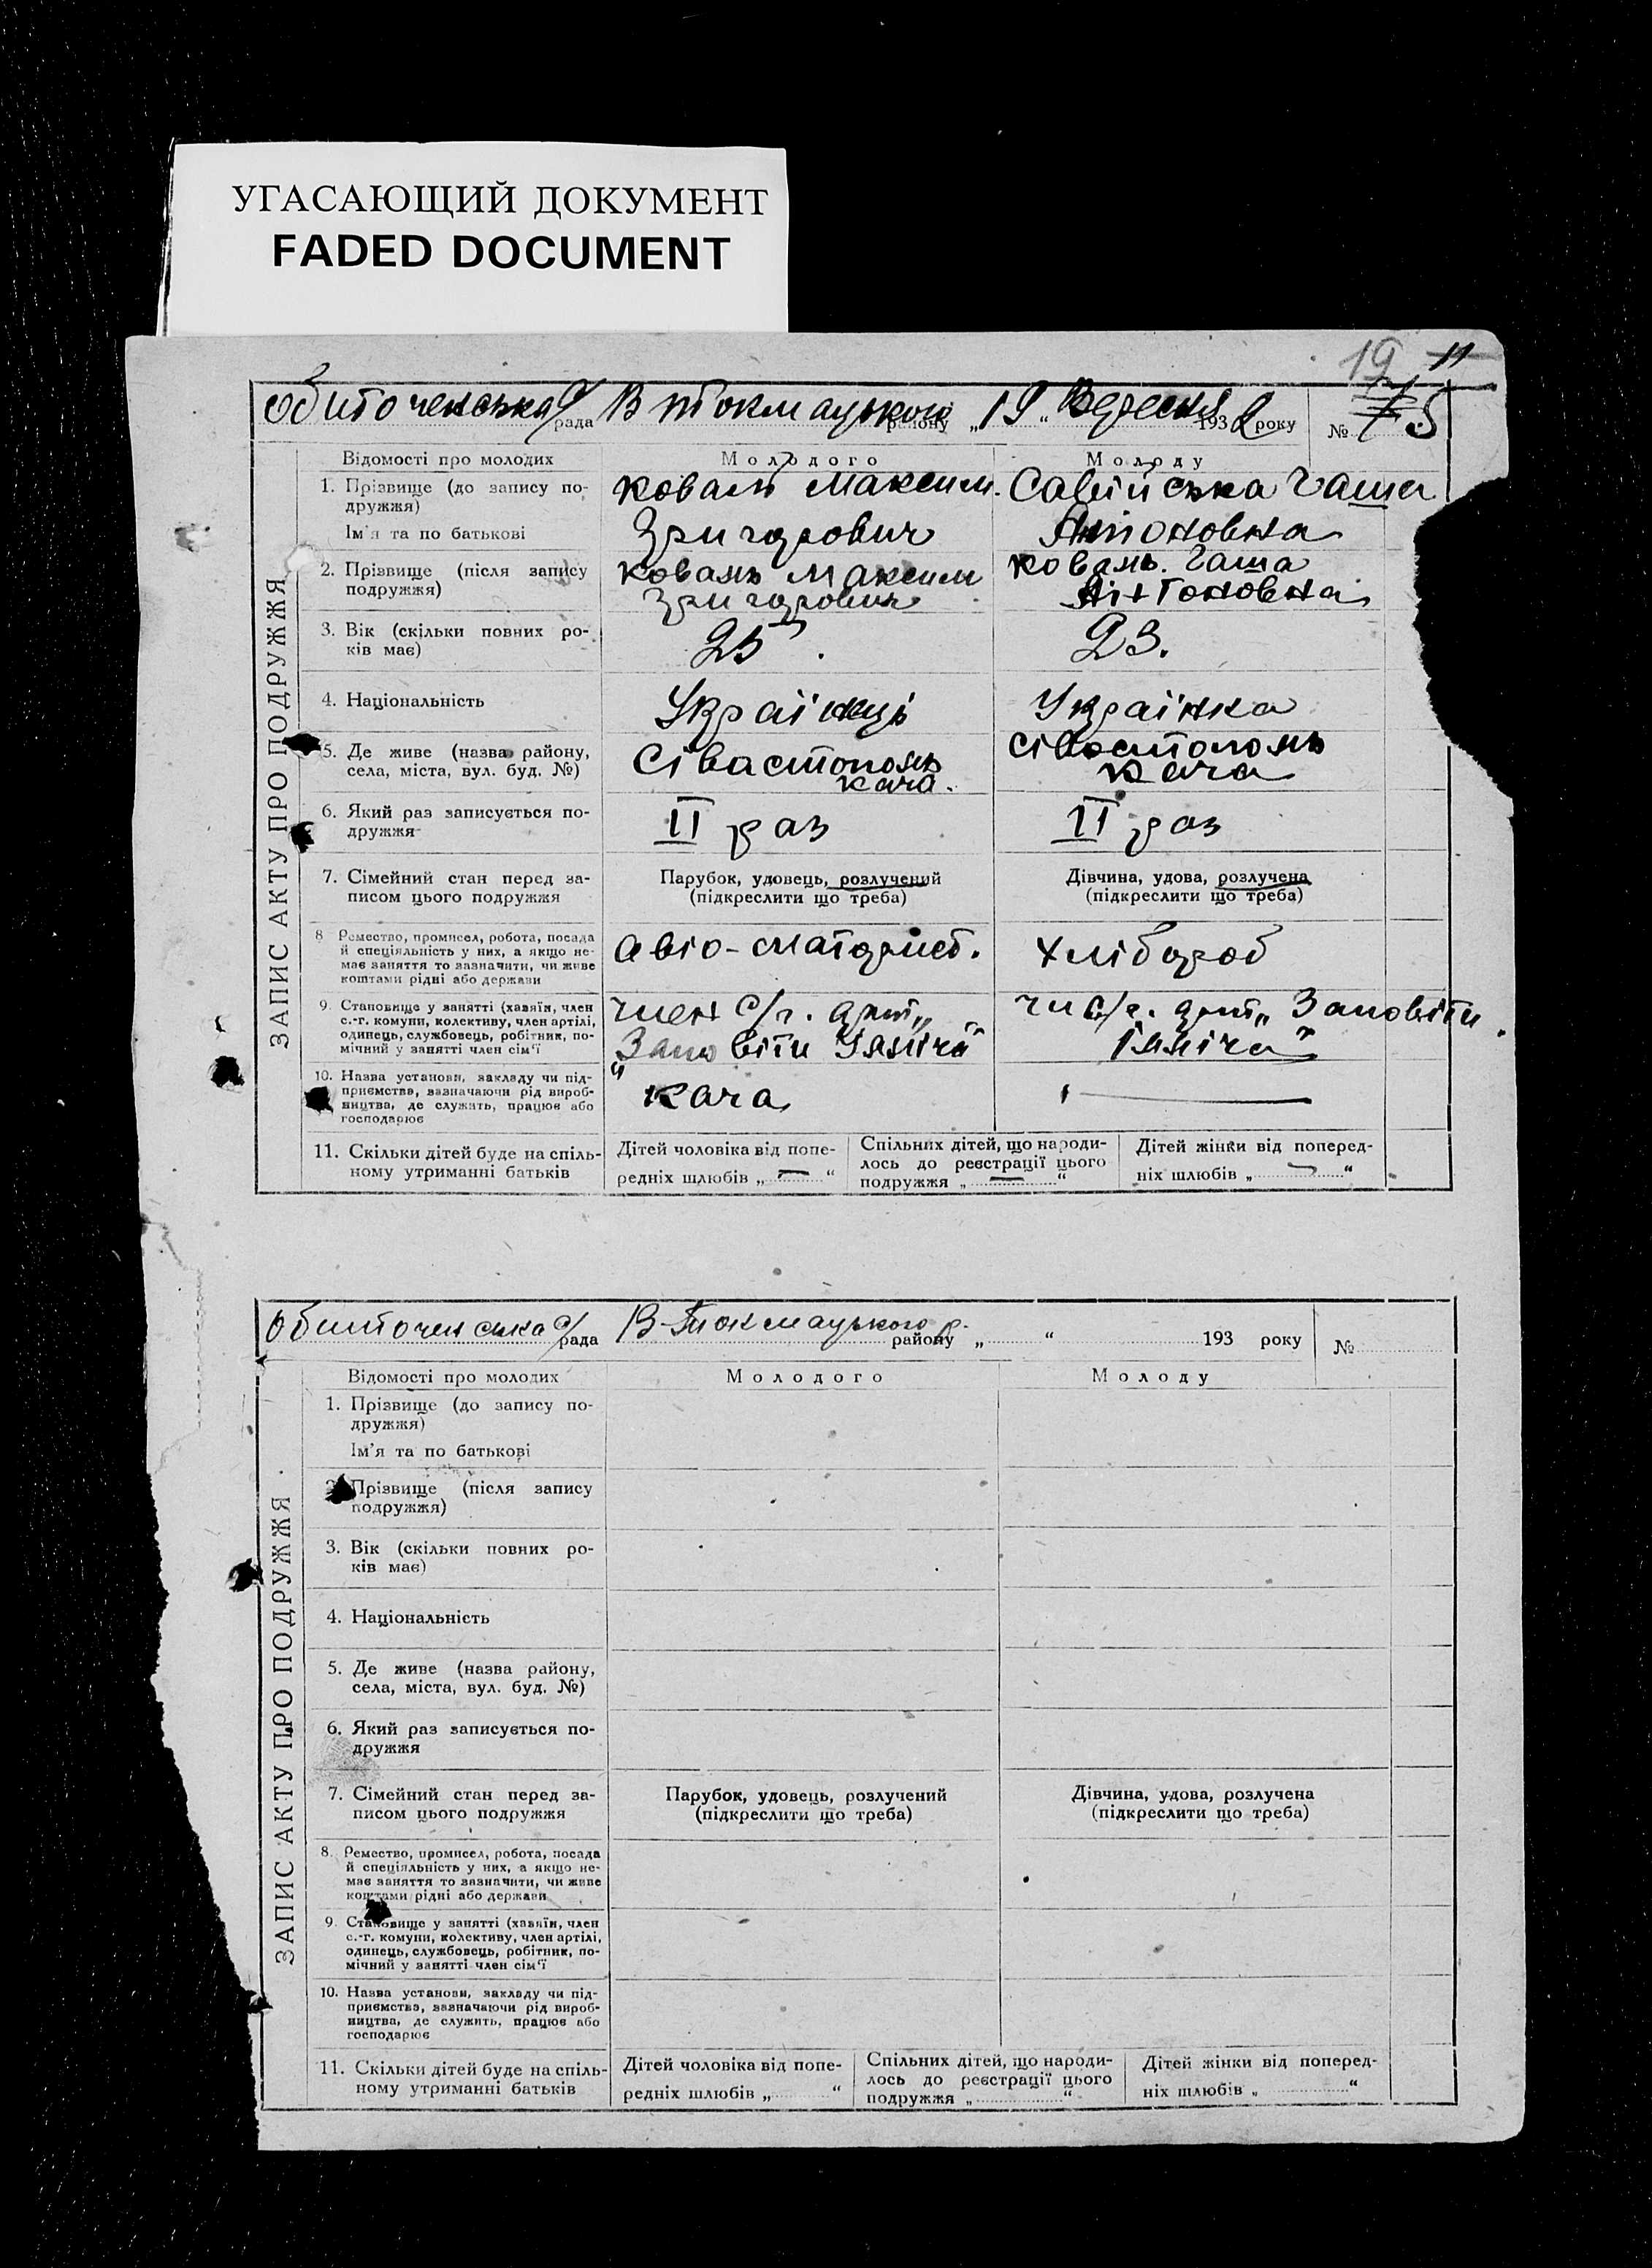 УГАСАЮЩИЙ ДОКУМЕНТ
FADED DOCUMENT
19 11
Обиточенська с/рада В Токмацького району „19“ Вересня 1932 року № 5
ЗАПИС АКТУ ПРО ПОДРУЖЖЯ
Відомості про молодих Молодого Молоду
1. Прізвище (до запису по-
дружжя)
Ім'я та по батькові
Коваль Максим
Григорович
Савійська Гаша
Антоновна
2. Прізвище (після запису
подружжя)
Коваль Максим
Григорович
Коваль. Гаша
Антоновна
3. Вік (скільки повних ро-
ків має)
25.
23.
4. Національність
Українць
Українка
5. Де живе (назва району,
села, міста, вул. буд. №)
Сівастополь
Кача.
Сівостополь
Кача
6. Який раз записується по-
дружжя
II раз
II раз
7. Сімейний стан перед за-
писом цього подружжя
Парубок, удовець, розлучений
(підкреслити що треба)
Дівчина, удова, розлучена
(підкреслити що треба)
8 Ремество, промисел, робота, посада
й спеціяльність у них, а якщо не-
має заняття то зазначити, чи живе
коштами рідні або держави
Авіо-маторист.
Хлібороб
9. Становище у занятті (хазяїн, член
с.-г. комуни, колективу, член артілі,
одинець, службовець, робітник, по-
мічний у занятті член сім'ї
член с/г. арт„
„Заповіти Ілліча“
чл с/г. арт„ Заповіти
Ілліча“
10. Назва установи, закладу чи під-
приємства, зазначаючи рід вироб-
ництва, де служить, працює або
господарює
Кача
—
11. Скільки дітей буде на спіль-
ному утриманні батьків
Дітей чоловіка від попе-
редніх шлюбів „ — “
Спільних дітей, що народи-
лось до реєстрації цього
подружжя „ — “
Дітей жінки від поперед-
ніх шлюбів „ — “
Обиточенська с/рада В-Токмацького р. району „ “ 193 року №
ЗАПИС АКТУ ПРО ПОДРУЖЖЯ
Відомості про молодих Молодого Молоду
1. Прізвище (до запису по-
дружжя)
Ім'я та по батькові
2. Прізвище (після запису
подружжя)
3. Вік (скільки повних ро-
ків має)
4. Національність
5. Де живе (назва району,
села, міста, вул. буд. №)
6. Який раз записується по-
дружжя
7. Сімейний стан перед за-
писом цього подружжя
Парубок, удовець, розлучений
(підкреслити що треба)
Дівчина, удова, розлучена
(підкреслити що треба)
8. Ремество, промисел, робота, посада
й спеціяльність у них, а якщо не-
має заняття то зазначити, чи живе
коштами рідні або держави
9. Становище у занятті (хазяїн, член
с.-г. комуни, колективу, член артілі,
одинець, службовець, робітник, по-
мічний у занятті член сім'ї
10. Назва установи, закладу чи під-
приємства, зазначаючи рід вироб-
ництва, де служить, працює або
господарює
11. Скільки дітей буде на спіль-
ному утриманні батьків
Дітей чоловіка від попе-
редніх шлюбів „ “
Спільних дітей, що народи-
лось до реєстрації цього
подружжя „ “
Дітей жінки від поперед-
ніх шлюбів „ “